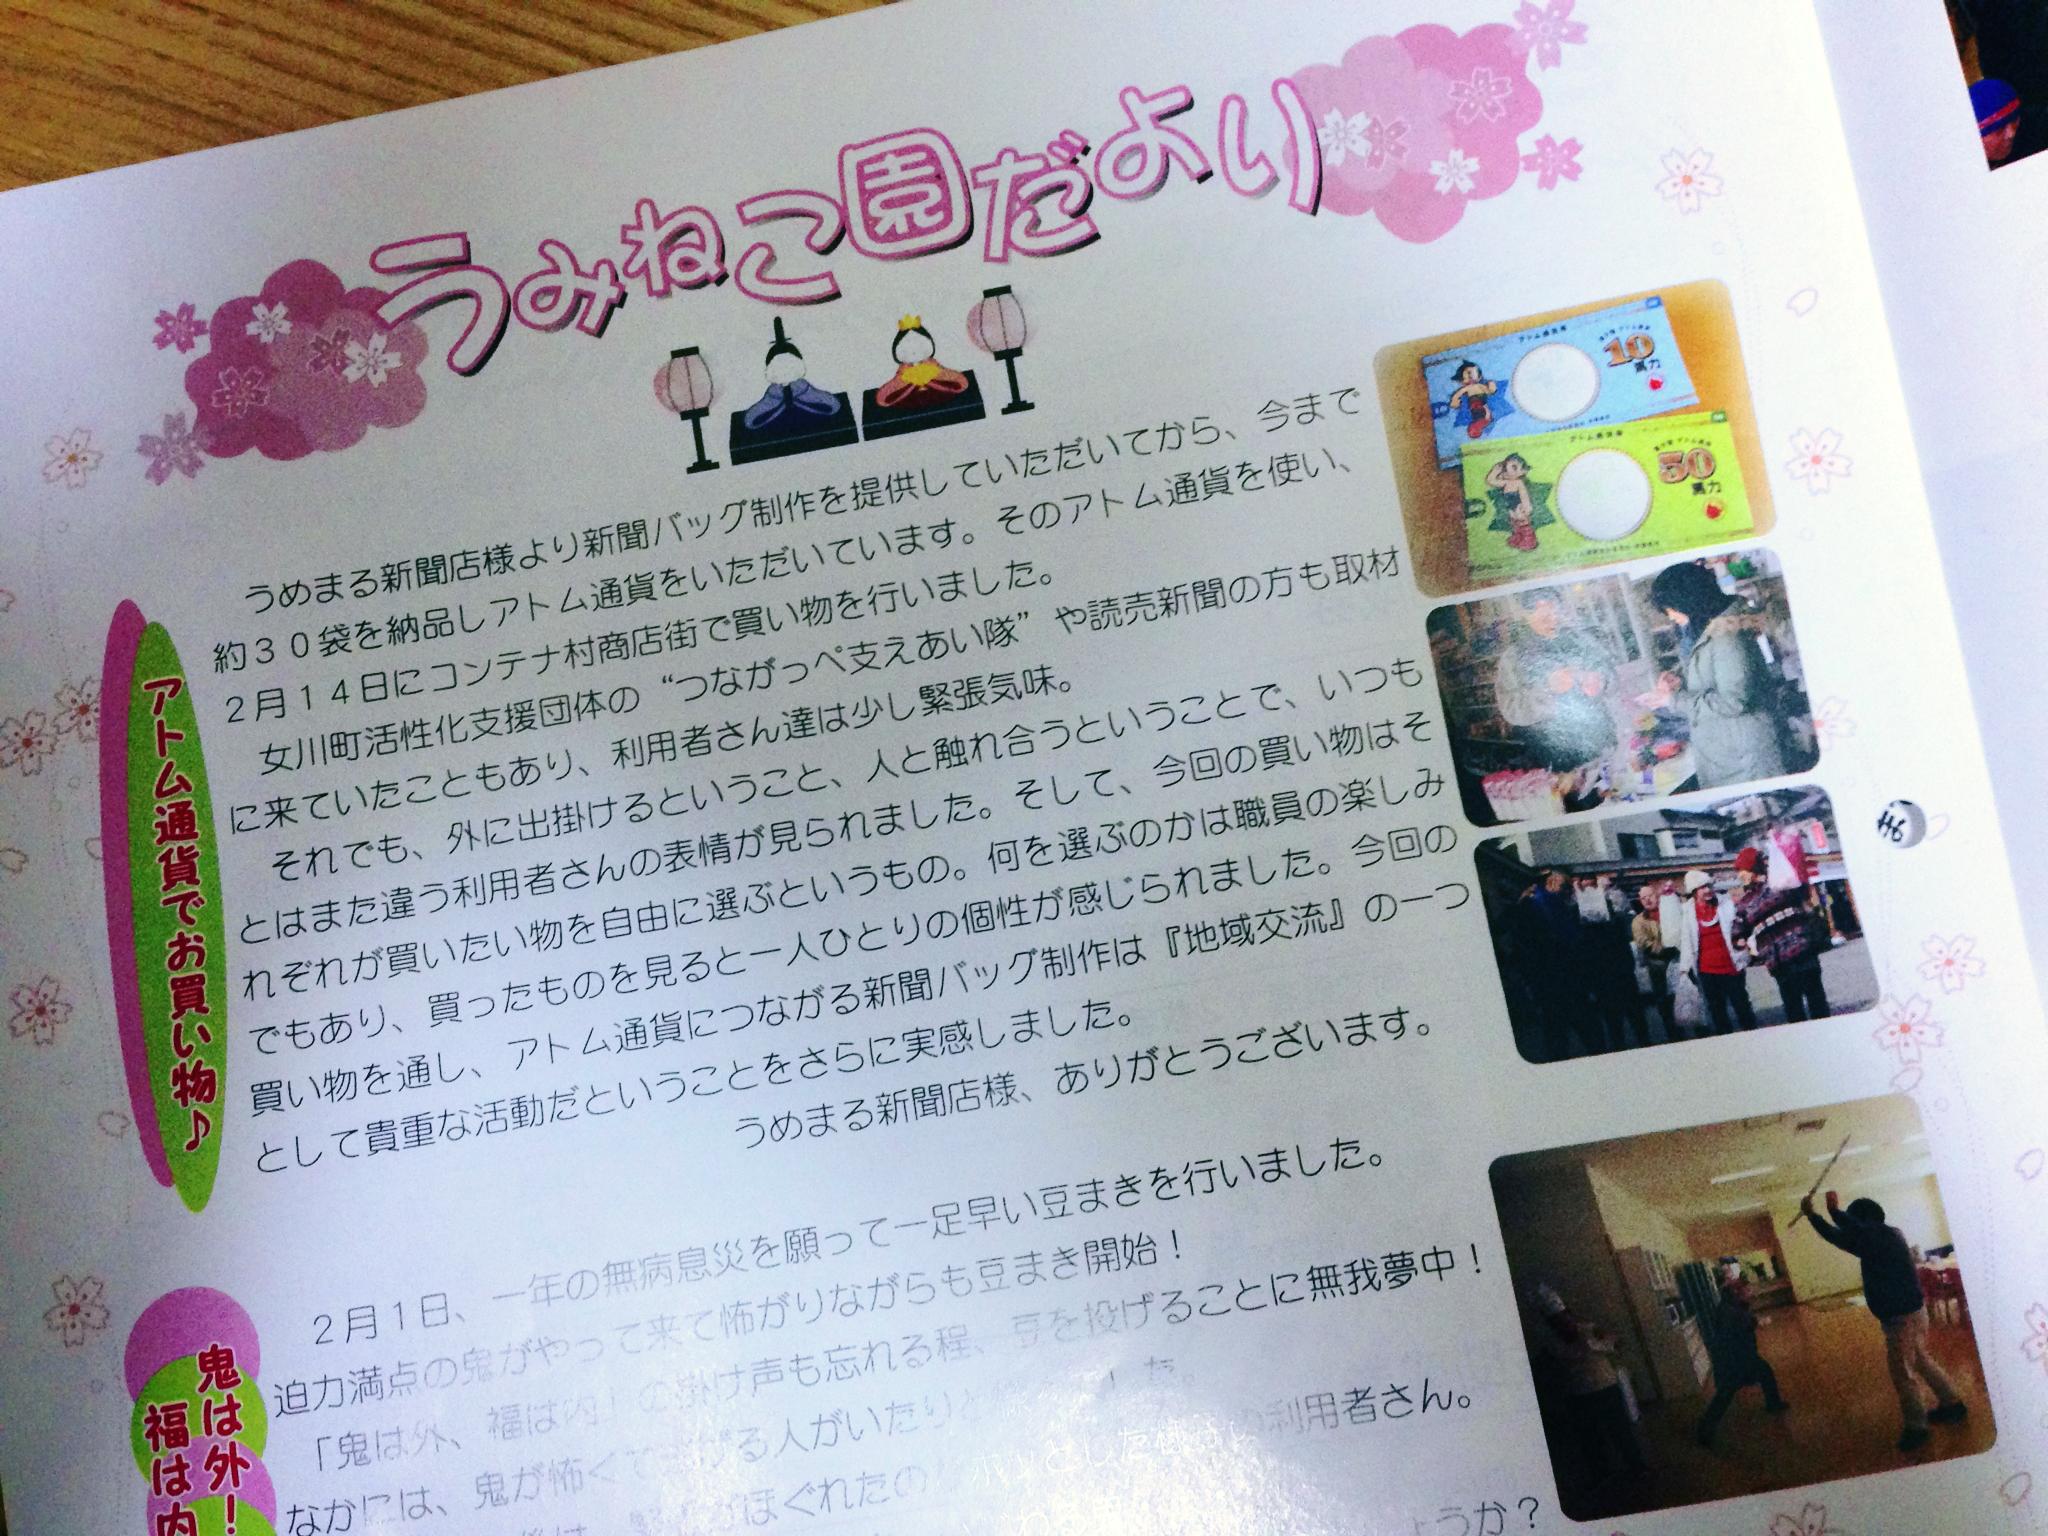 うみねこ園だより
アトム通貨でお買い物♪
うめまる新聞店様より新聞バッグ制作を提供していただいてから、今まで
約３０袋を納品しアトム通貨をいただいています。そのアトム通貨を使い、
２月１４日にコンテナ村商店街で買い物を行いました。
女川町活性化支援団体の“つながっぺ支えあい隊”や読売新聞の方も取材
に来ていたこともあり、利用者さん達は少し緊張気味。
それでも、外に出掛けるということ、人と触れ合うということで、いつも
とはまた違う利用者さんの表情が見られました。そして、今回の買い物はそ
れぞれが買いたい物を自由に選ぶというもの。何を選ぶのかは職員の楽しみ
でもあり、買ったものを見ると一人ひとりの個性が感じられました。今回の
買い物を通し、アトム通貨につながる新聞バッグ制作は『地域交流』の一つ
として貴重な活動だということをさらに実感しました。
うめまる新聞店様、ありがとうございます。
アトム通貨
10
馬力
アトム通貨
50
馬力
鬼は外！
福は内
２月１日、一年の無病息災を願って一足早い豆まきを行いました。
迫力満点の鬼がやって来て怖がりながらも豆まき開始！
「鬼は外、福は内」の掛け声も忘れる程、豆を投げることに無我夢中！
なかには、鬼が怖くて
る人がいたり
した。
ほぐれたの
ホッとした
利用者さん。
ょうか？
ま